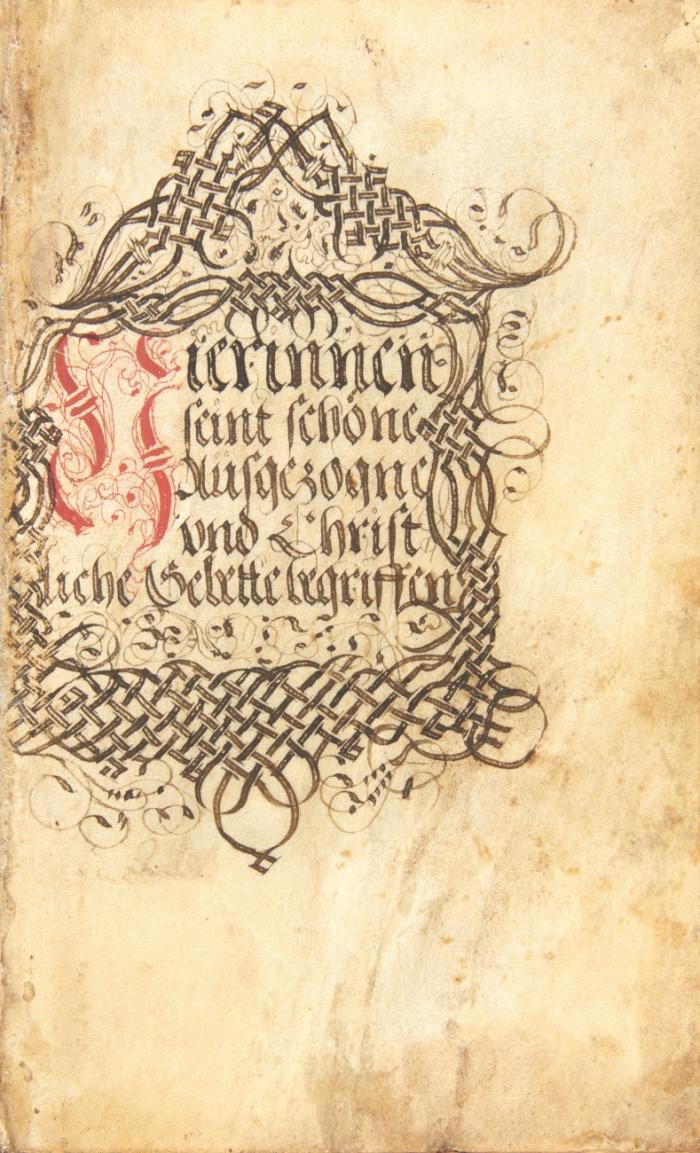 Hierinnen
seint schöne
Ausgezogne
vnd Christ
liche Gebette begriffen